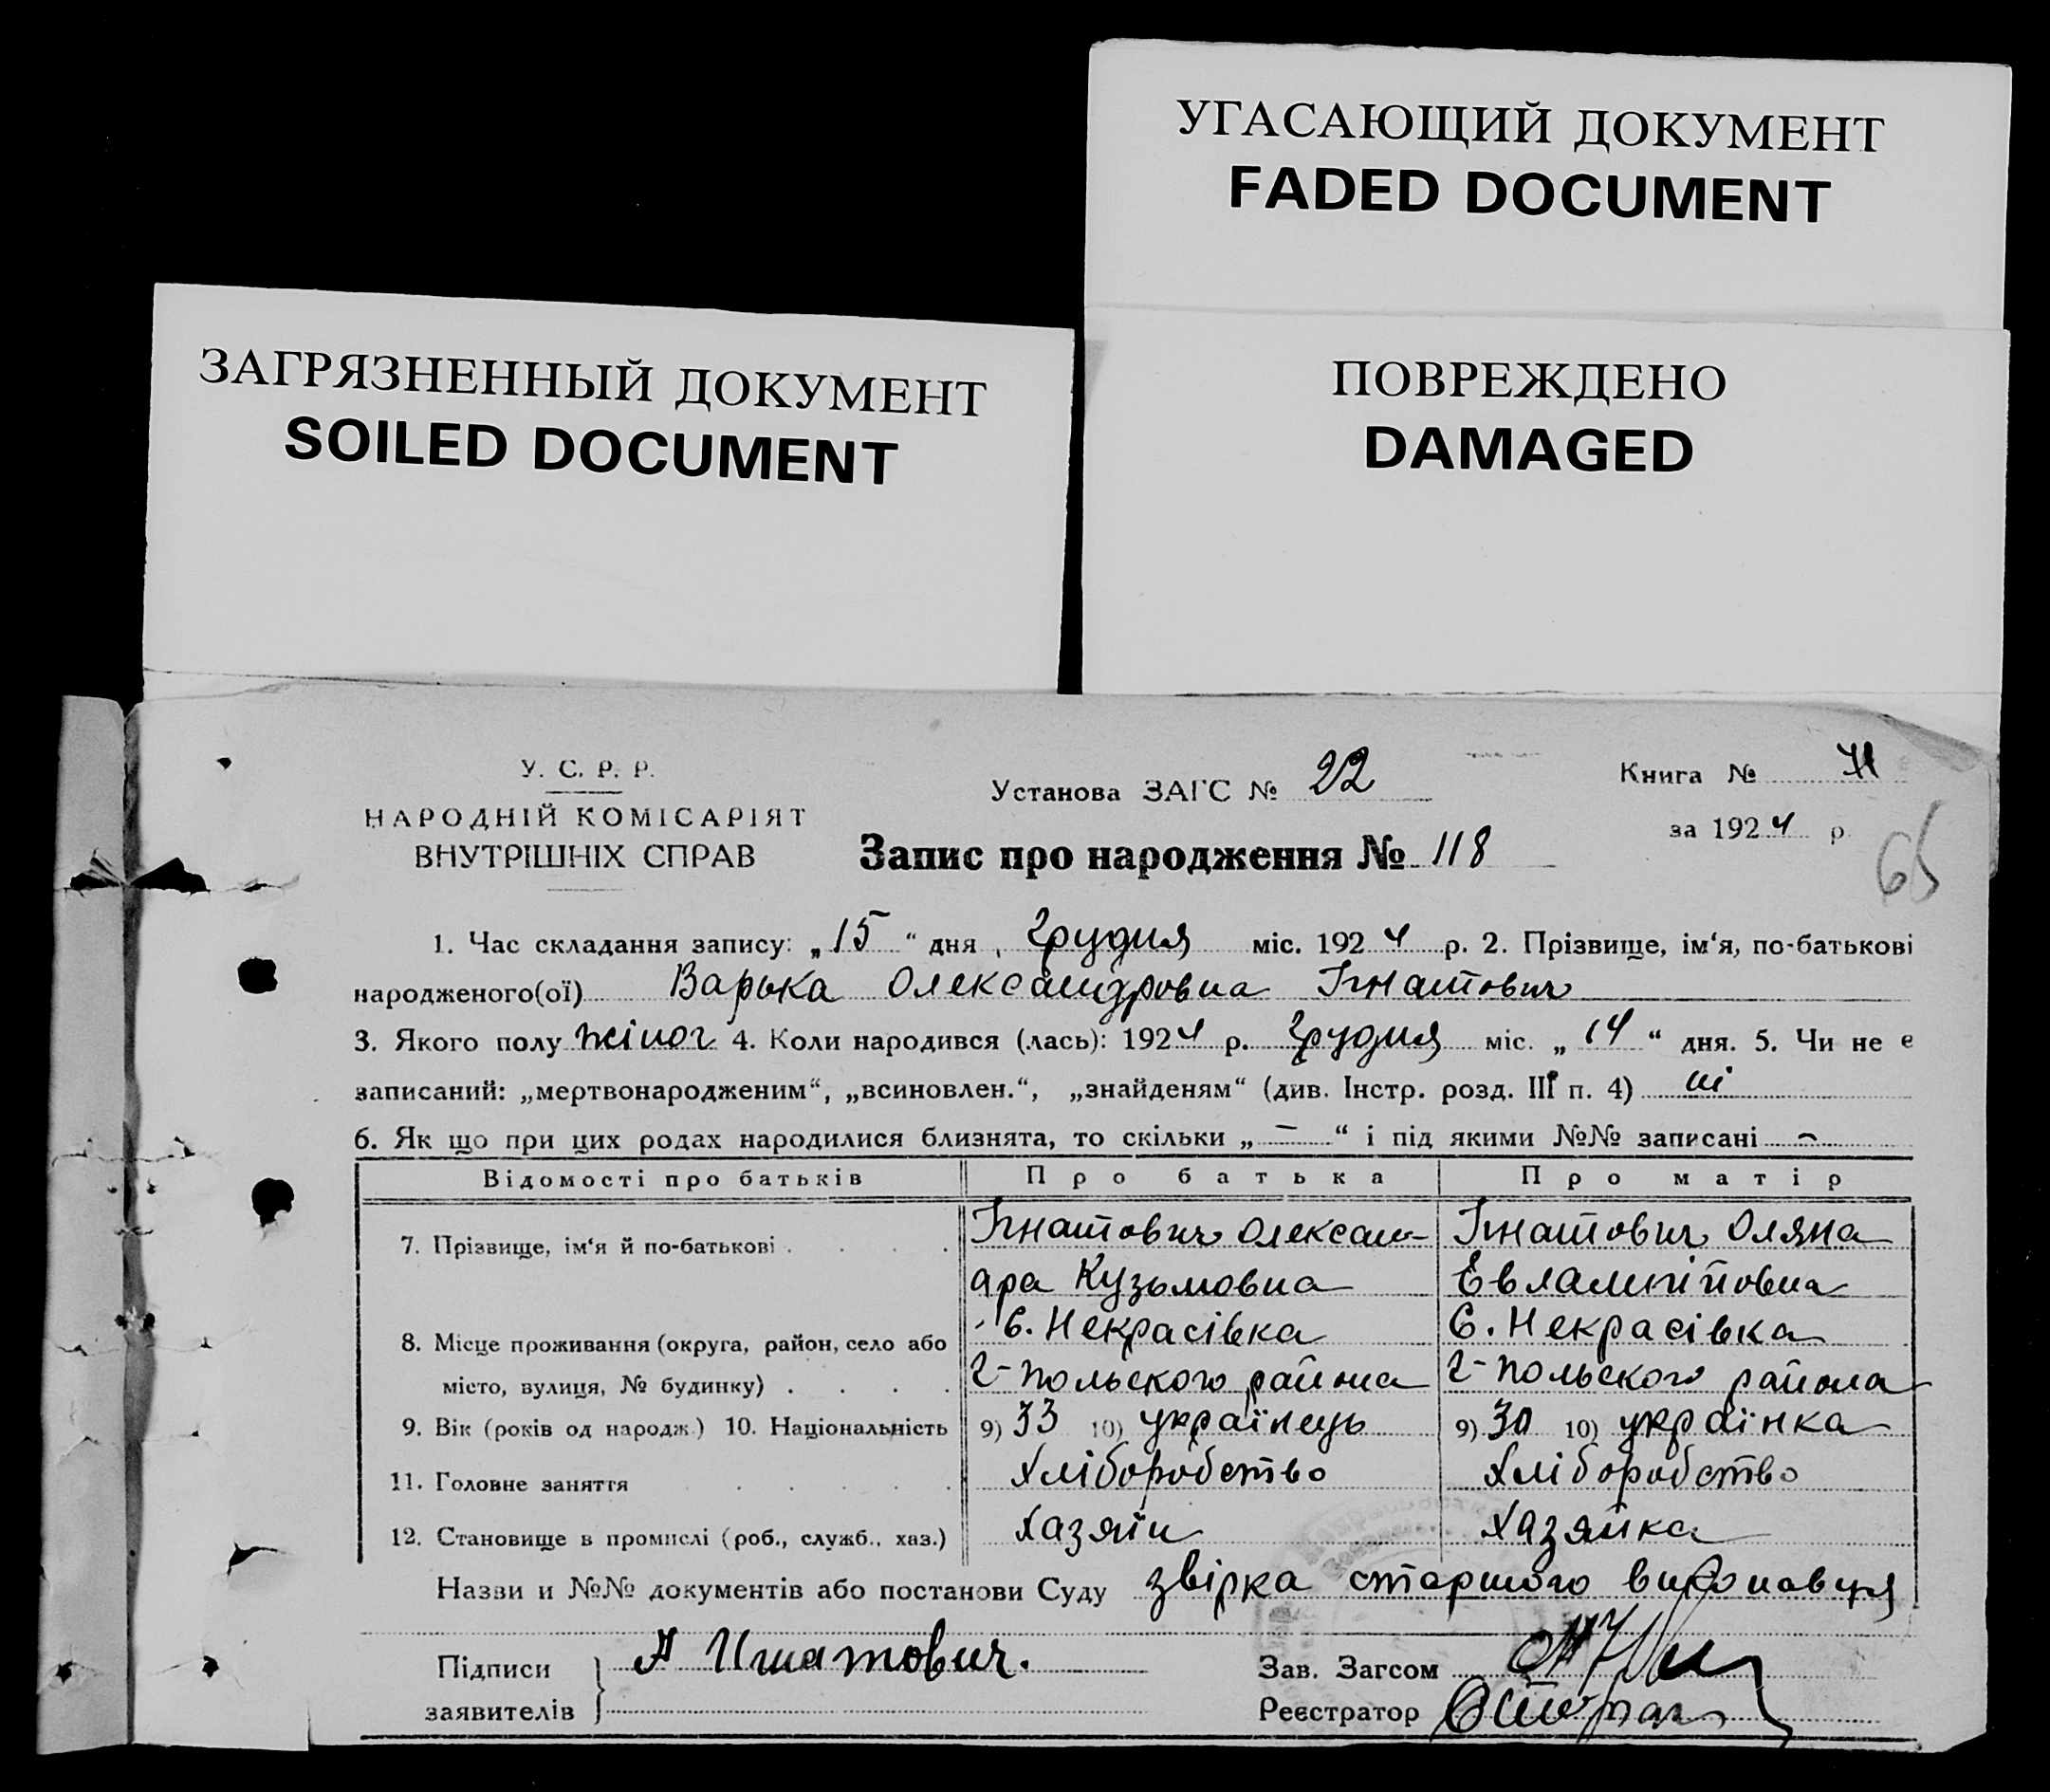 УГАСАЮЩИЙ ДОКУМЕНТ
FADED DOCUMENT
ЗАГРЯЗНЕННЫЙ ДОКУМЕНТ
SOILED DOCUMENT
ПОВРЕЖДЕНО
DAMAGED
У. С. Р. Р.
НАРОДНІЙ КОМІСАРІЯТ
ВНУТРІШНІХ СПРАВ
Установа ЗАГС № 22
Книга №
за 1924 р.
65
Запис про народження № 118
1. Час складання запису: „15“ дня грудня міс. 1924 р. 2. Прізвище, ім‘я, по-батькові
народженого(ої) Варька Олександровна Ігнатович
3. Якого полу жіноч 4. Коли народився (лась): 1924 р. грудня міс. „14“ дня. 5. Чи не є
записаний: „мертвонародженим“, „всиновлен.“, „знайденям“ (див. Інстр. розд. III п. 4) ні
6. Як що при цих родах народилися близнята, то скільки „—“ і під якими №№ записані —
Відомості про батьків Про батька Про матір
7. Прізвище, ім‘я й по-батькові . . . . Ігнатович Олексан- Ігнатович Оляна
дра Кузьмовна Евлампійовна
8. Місце проживання (округа, район, село або С. Некрасівка С. Некрасівка
місто, вулиця, № будинку) . . . . Г-польского района Г-польского района
9. Вік (років од народж.) 10. Національність 9) 33 10) українець 9) 30 10) українка
11. Головне заняття . . . . . Хліборобство Хліборобство
12. Становище в промислі (роб., служб., хаз.) Хазяїн Хазяйка
Назви и №№ документів або постанови Суду звірка старшого виконавця
Підписи А Игнатович.
заявителів
Зав. Загсом
Реєстратор